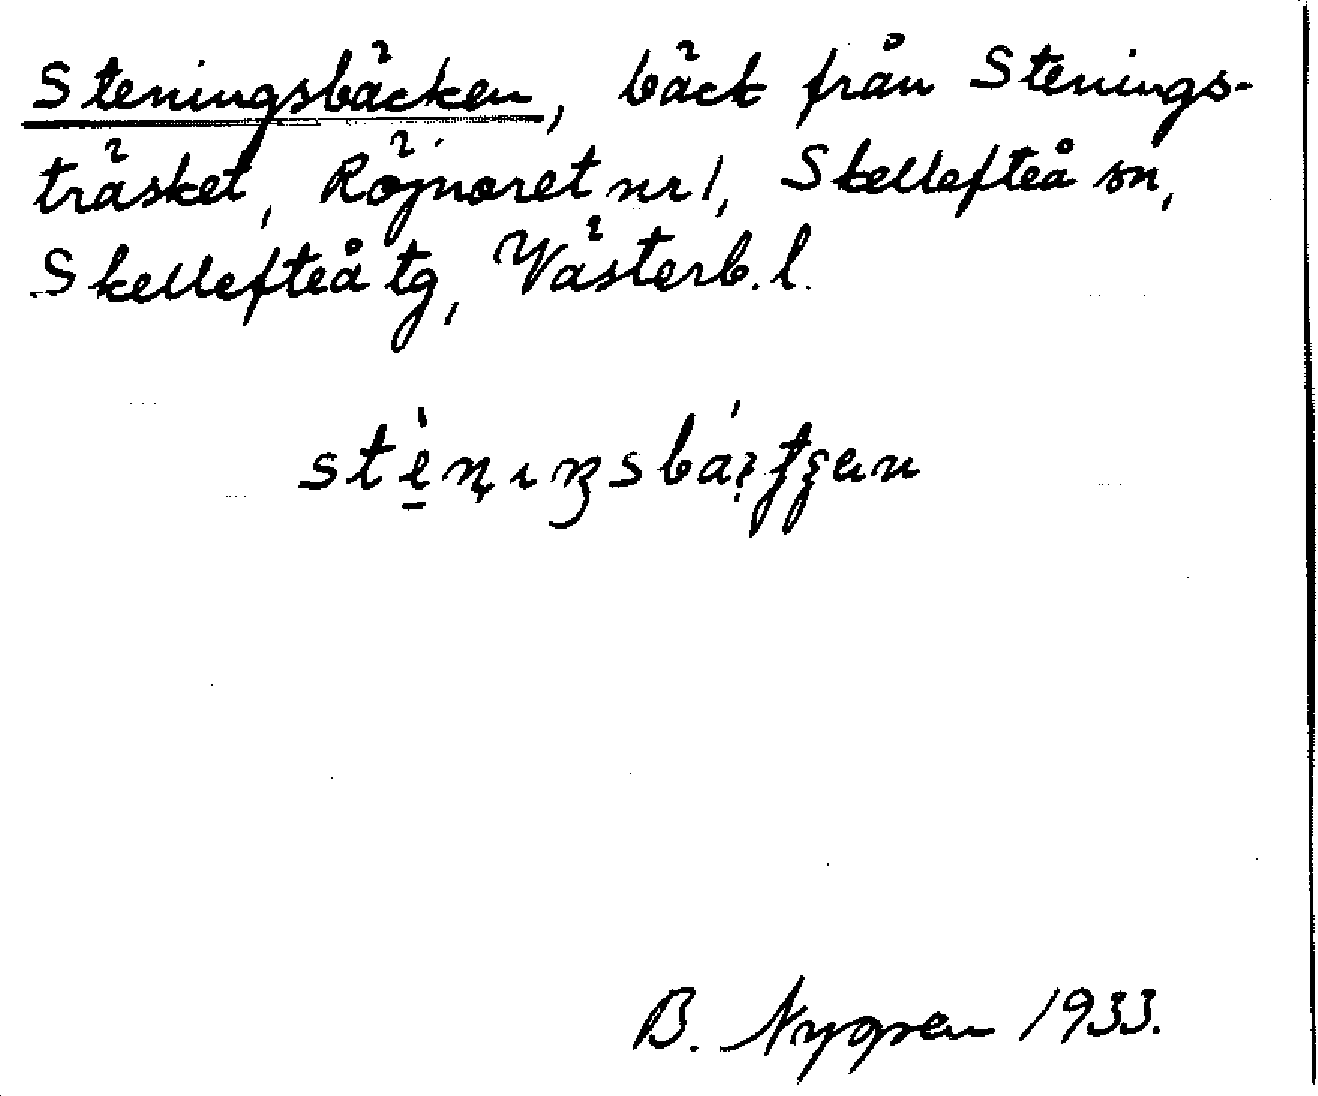 Steningsbäcken, bäck från Stenings-
träsket, Röjnoret nr 1, Skellefteå sn,
Skellefteå tg, Västerb. l.
B. Nygren 1933.